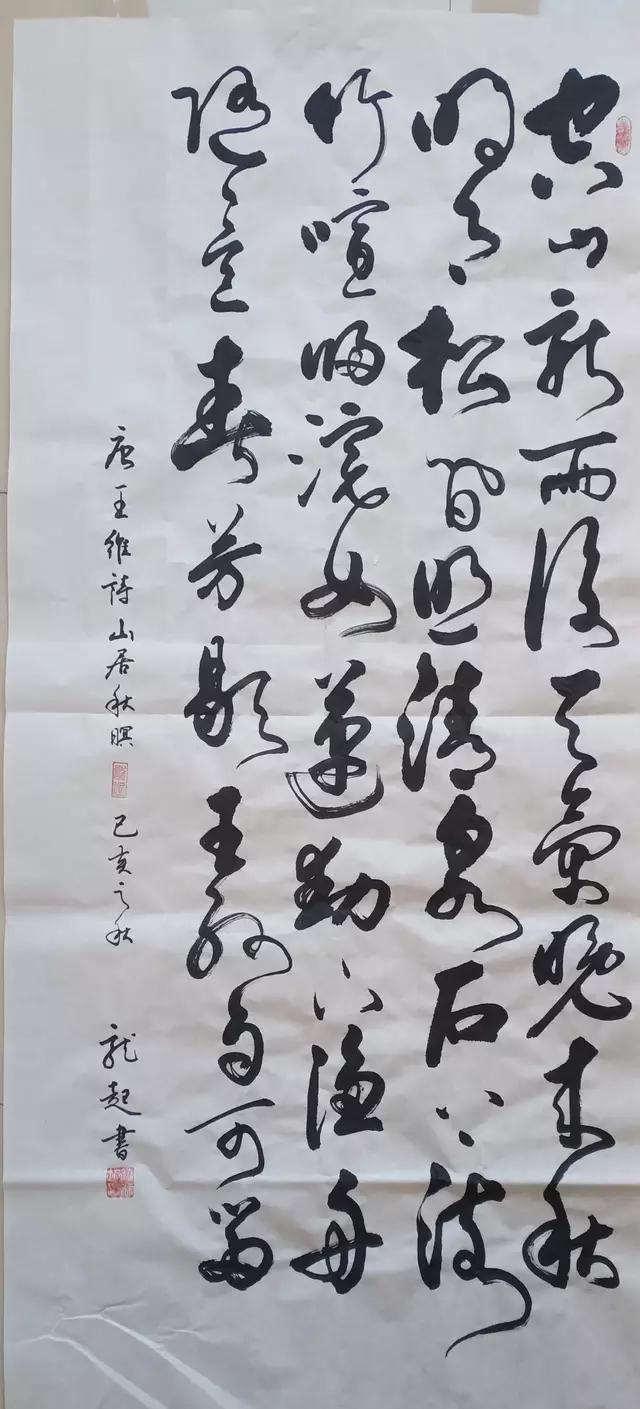 空山新雨後天氣晚来秋
明月松间照清泉石上流
竹喧歸浣女蓮動下漁舟
随意春芳歇王孫自可留
唐王維詩山居秋暝 己亥之秋 龍起書